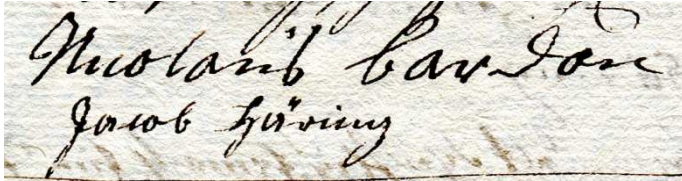 Nicolaus Cardon
Jacob Häring